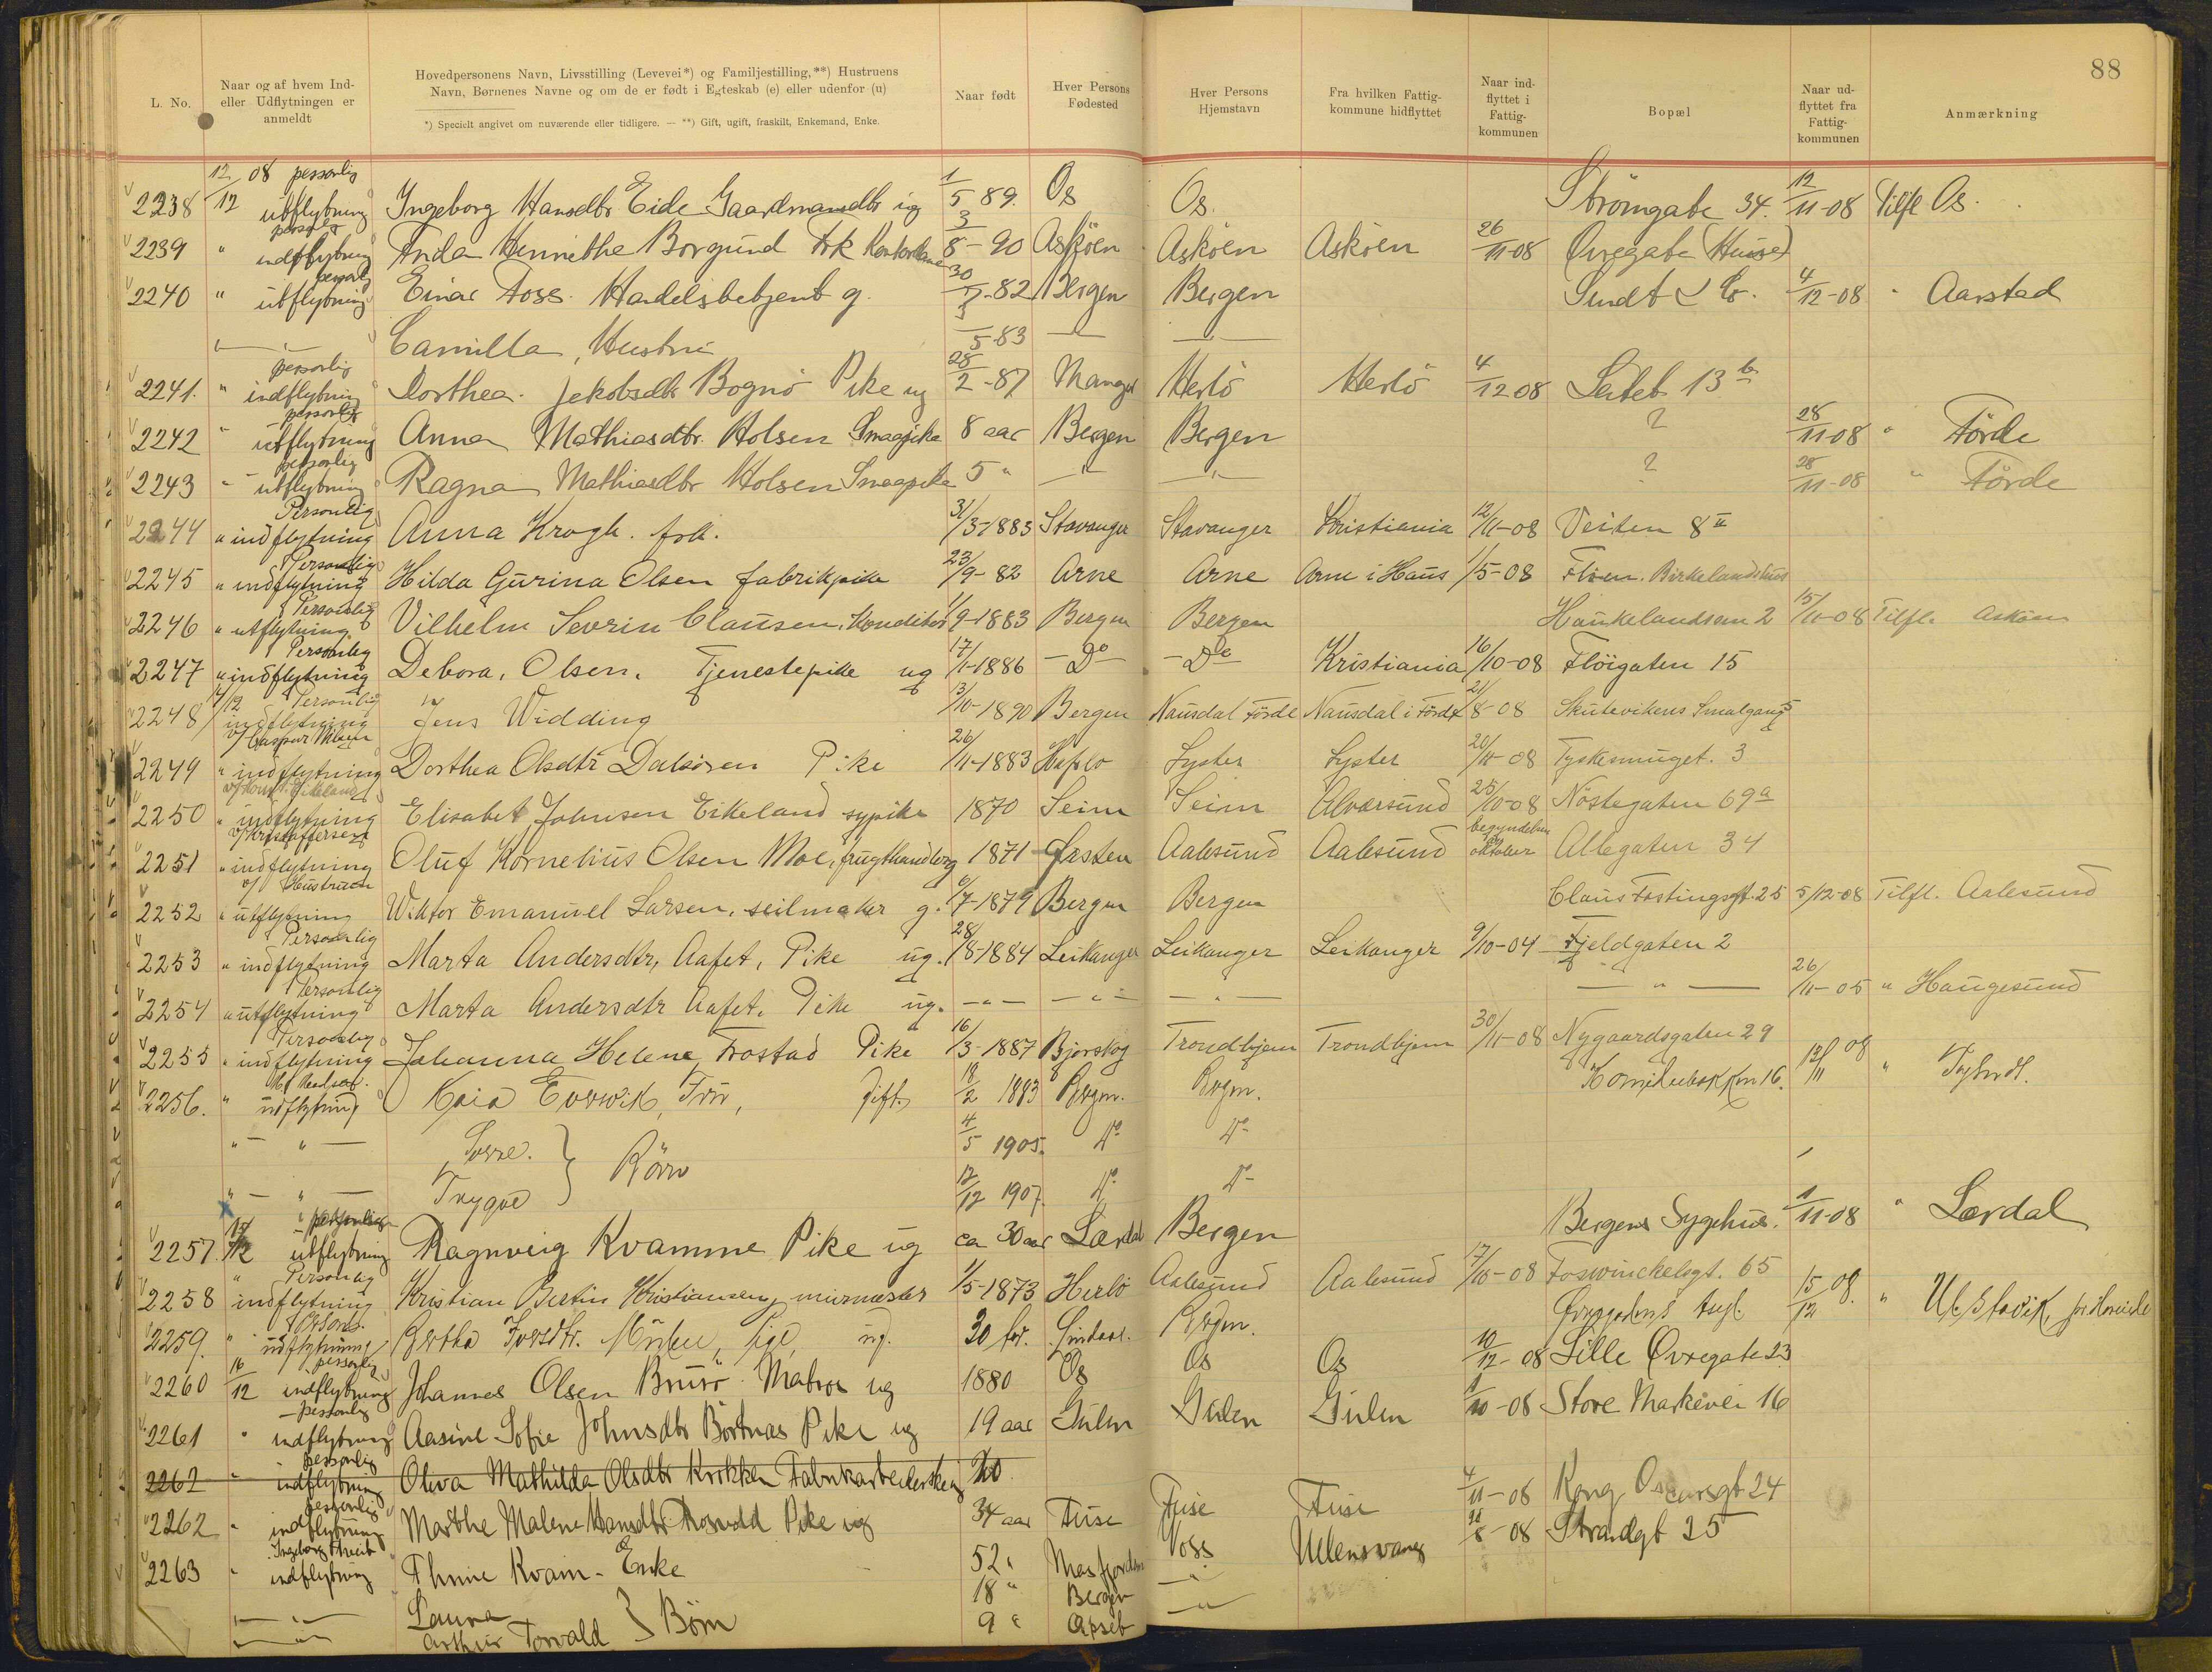 88
L. No. Naar og af hvem Ind- eller Udflytningen er anmeldt Hovedpersonens Navn, Livsstilling (Levevei*) og Familjestilling,**) Hustruens Navn, Børnenes Navne og om de er født i Egteskab (e) eller udenfor (u) Naar født Hver Persons Fødested Hver Persons Hjemstavn Fra hvilken Fattigkommune hidflyttet Naar indflyttet i Fattigkommunen Bopæl Naar udflyttet fra Fattigkommunen Anmærkning
*) Specielt angivet om nuværende eller tidligere. — **) Gift, ugift, fraskilt, Enkemand, Enke.
2238 12/12 08 personlig utflytning Ingeborg Hansdtr Eide Gaardmandsdtr ug 1/5 89. Os Os. Strömgate 34. 12/11-08 Tilfl Os.
2239 " personlig indflytning Anda Henriethe Borgund Frk 3/8-90 Asköen Asköen Asköen 26/11-08 Øvregate (Huse)
2240 " personlig utflytning Einar Foss. Handelsbetjent g. 30/7-82 Bergen Bergen Sundt & Co. 4/12-08 " Aarstad
Camilla, Hustru 3/5-83
2241. " personlig indflytning Dorthea Jakobsdtr Bognö Pike ug 28/2-87 Manger Herlö Herlö 4/12 08 Sætet 13 b
2242 " personlig utflytning Anna Mathiasdtr. Holsen Smaapike 8 aar Bergen Bergen ? 28/11-08 " Förde
2243 " personlig utflytning Ragna Mathiasdtr Holsen Smaapike 5 " ? 28/11-08 " Förde
2244 " Personlig indflytning Anna Krogh. frk. 31/3-1883 Stavanger Stavanger Kristiania 12/11-08 Veiten 8 II
2245 " Personlig indflytning Hilda Gurina Olsen fabrikpike 23/9-82 Arne Arne Arne i Haus 1/5-08 Fløen. Birkelandshus
2246 " Personlig utflytning Vilhelm Severin Clausen, Konditor 1/9-1883 Bergen Bergen Haukelandsvn 2 15/11-08 Tilfl. Asköen
2247 " Personlig indflytning Debora, Olsen, Tjenestepike ug 17/11-1886 - Do - - Do - Kristiania 16/10-08 Flöigaten 15
2248 14/12 Personlig indflytning Jens Widding 3/10-1890 Bergen Nausdal Förde Nausdal i Förde 21/8-08 Skutevikens Smalgang 5
2249 " indflytning Dorthea Olsdtr Dalsören Pike 26/11-1883 Hafslo Lyster Lyster 20/11-08 Tyskesmuget. 3
2250 " indflytning Elisabet Johnsen Eikeland sypike 1870 Seim Seim Alversund 25/10-08 Nöstegaten 69 a
2251 v/ Kristoffersen " indflytning Oluf Kornelius Olsen Moe, frugthandler g 1871 Aalesund Aalesund begyndelsen af oktober Allegaten 34
2252 v/ Hustruen " utflytning Wiktor Emanuel Larsen, seilmaker g. 6/7-1879 Bergen Bergen Claus Fastingsgt. 25 5/12-08 Tilfl. Aalesund
2253 " Personlig indflytning Marta Andersdtr, Aafet, Pike ug. 28/8-1884 Leikanger Leikanger Leikanger 9/10-04 Fjeldgaten 2
2254 " Personlig utflytning Marta Andersdtr Aafet, Pike ug. - " - - " - - " - - " - 26/11-05 " Haugesund
2255 " Personlig indflytning Johanna Helene Frostad Pike 16/3-1887 Trondhjem Trondhjem 30/11-08 Nygaardsgaten 29
2256. " udflytning Kaia Fru, gift. 18/2 1883 Bergen. Bergen. 16. 12/11 08 " Tysnes.
Sverre. } Börn 4/5 1905. Do Do
Trygve 12/12 1907. Do Do
2257. personlig utflytning Ragnveig Kvamme Pike ug ca 30 aar Lærdal Bergen Bergens Sygehus. 1/11-08 " Lærdal
2258 " Personlig indflytning Kristian Bertin Kristiansen, murmester 1/5-1873 Herlö Aalesund Aalesund 17/10-08 Foswinckelsgt. 65
2259. " Person. udflytning Bertha Iversdtr. ug. 20 Bergen. 15/12 08. "
2260 16/12 personlig indflytning Johannes Olsen Bruö Matros ug 1880 Os Os Os 10/12-08 Lille Øvregate 23
2261 " personlig indflytning Aasine Sofie Johnsdtr Börtnæs Pike ug 19 aar Gulen Gulen Gulen 1/10-08 Store Markevei 16
2262 " personlig indflytning Oliva Mathilda Olsdtr Krokken Fabrikarbeiderske ug 20
2262 " personlig indflytning Marthe Malene Hansdtr Pike ug 34 aar Fuse Fuse Fuse 4/11-08 Kong Oscarsgt 24
2263 " indflytning Kvam - Enke 52 " Masfjorden Voss Ullensvang 8-08 Strandgt 25
Laura } Børn 18 " Bergen
Arthur Torvald 9 "